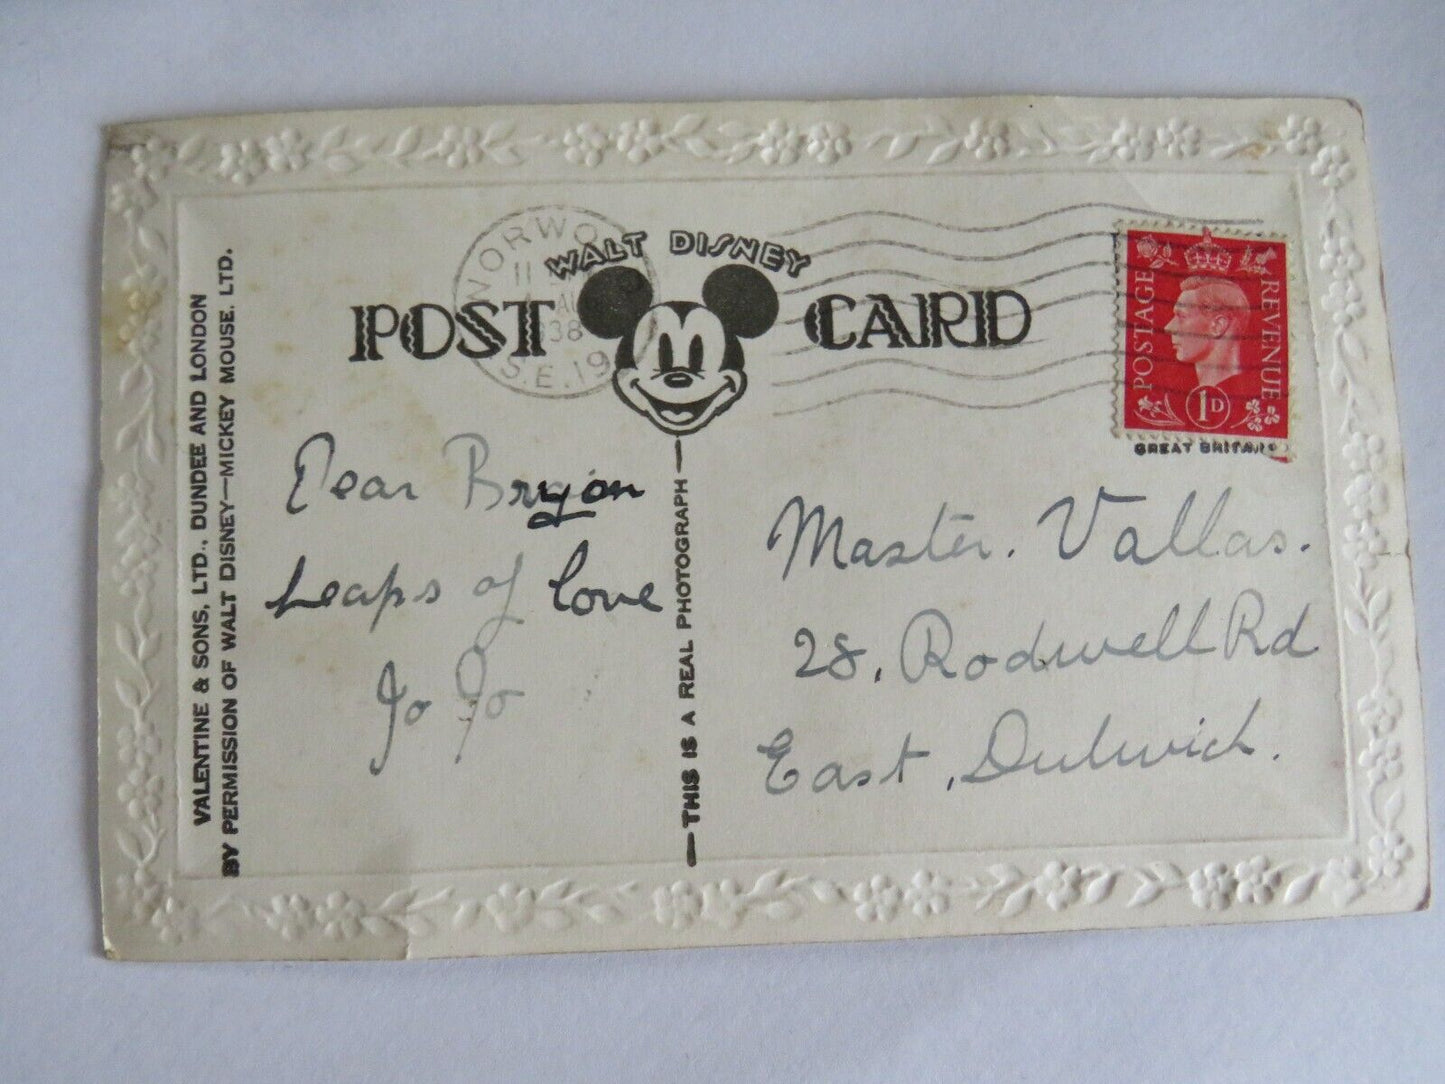 VALENTINE & SONS, LTD., DUNDEE AND LONDON
BY PERMISSION OF WALT DISNEY—MICKEY MOUSE. LTD.
NORWO
11
AU
38
S.E.19
WALT DISNEY
POST CARD
POSTAGE REVENUE
1D
GREAT BRITAIN
Dear Bryon
Heaps of love
Jo Jo
—THIS IS A REAL PHOTOGRAPH—
Master. Vallas.
28, Rodwell Rd
East, Dulwich.